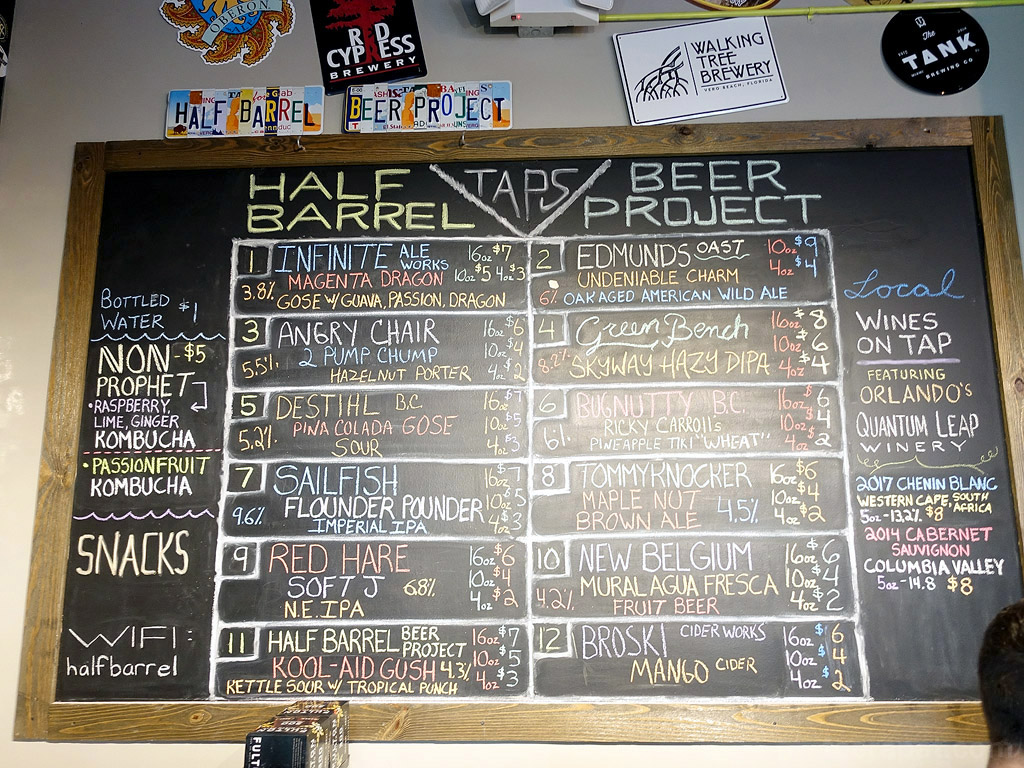 OBERON
RED
CYPRESS
BREWERY
WALKING
TREE
BREWERY
VERO BEACH, FLORIDA
The
TANK
BREWING CO
HALF BARREL
BEER PROJECT
HALF
BARREL
TAPS
BEER
PROJECT
1 INFINITE ALE WORKS 16oz $7
MAGENTA DRAGON 10oz $5 4oz $3
3.8% GOSE W/ GUAVA, PASSION, DRAGON
2 EDMUNDS OAST 10oz $9
UNDENIABLE CHARM 4oz $4
6% OAK AGED AMERICAN WILD ALE
3 ANGRY CHAIR 16oz $6
2 PUMP CHUMP 10oz $4
5.5% HAZELNUT PORTER 4oz $2
4 Green Bench 16oz $8
10oz $6
8.2% SKYWAY HAZY DIPA 4oz $4
5 DESTIHL B.C. 16oz $7
PINA COLADA GOSE 10oz $5
5.2% SOUR 4oz $3
6 BUGNUTTY B.C. 16oz $6
RICKY CARROLLS 10oz $4
6% PINEAPPLE TIKI "WHEAT" 4oz $2
7 SAILFISH 16oz $7
FLOUNDER POUNDER 10oz $5
9.6% IMPERIAL IPA 4oz $3
8 TOMMYKNOCKER 16oz $6
MAPLE NUT 10oz $4
BROWN ALE 4.5% 4oz $2
9 RED HARE 16oz $6
SOFT J 6.8% 10oz $4
N.E. IPA 4oz $2
10 NEW BELGIUM 16oz $6
MURAL AGUA FRESCA 10oz $4
4.2% FRUIT BEER 4oz $2
11 HALF BARREL BEER PROJECT 16oz $7
KOOL-AID GUSH 4.3% 10oz $5
KETTLE SOUR W/ TROPICAL PUNCH 4oz $3
12 BROSKI CIDER WORKS 16oz $6
MANGO CIDER 10oz $4
4oz $2
BOTTLED
WATER $1
NON -$5
PROPHET
•RASPBERRY,
LIME, GINGER
KOMBUCHA
•PASSIONFRUIT
KOMBUCHA
SNACKS
WIFI:
halfbarrel
Local
WINES
ON TAP
FEATURING
ORLANDO'S
QUANTUM LEAP
WINERY
2017 CHENIN BLANC
WESTERN CAPE, SOUTH AFRICA
5oz -13.2% $8
2014 CABERNET
SAUVIGNON
COLUMBIA VALLEY
5oz -14.8 $8